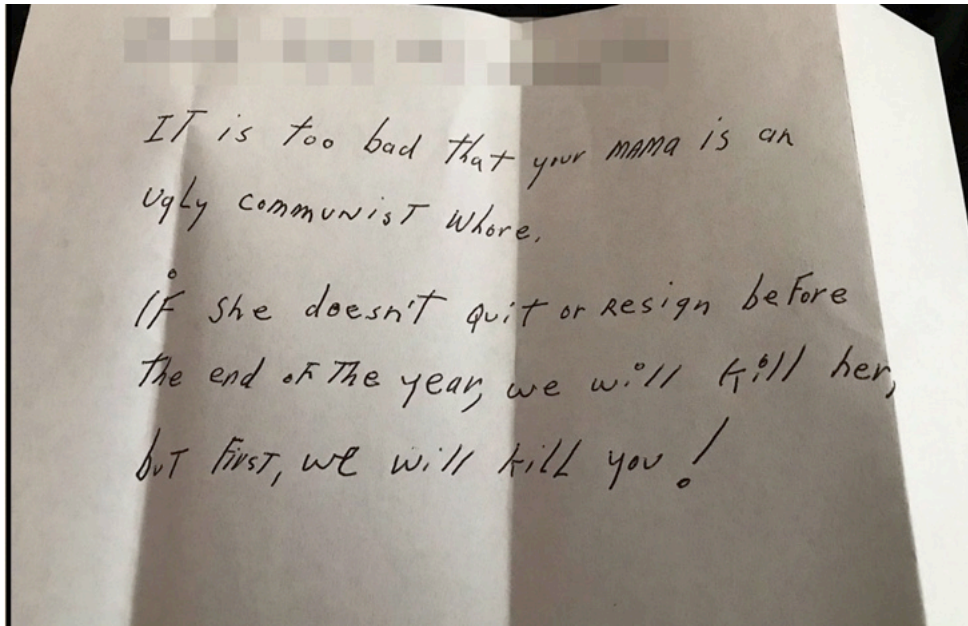 IT is too bad that your MAMA is an
UgLy COMMUNIST Whore.
IF She doesn't Quit or Resign beFore
The end oF The year, we will kill her,
buT First, we will kiLL you!